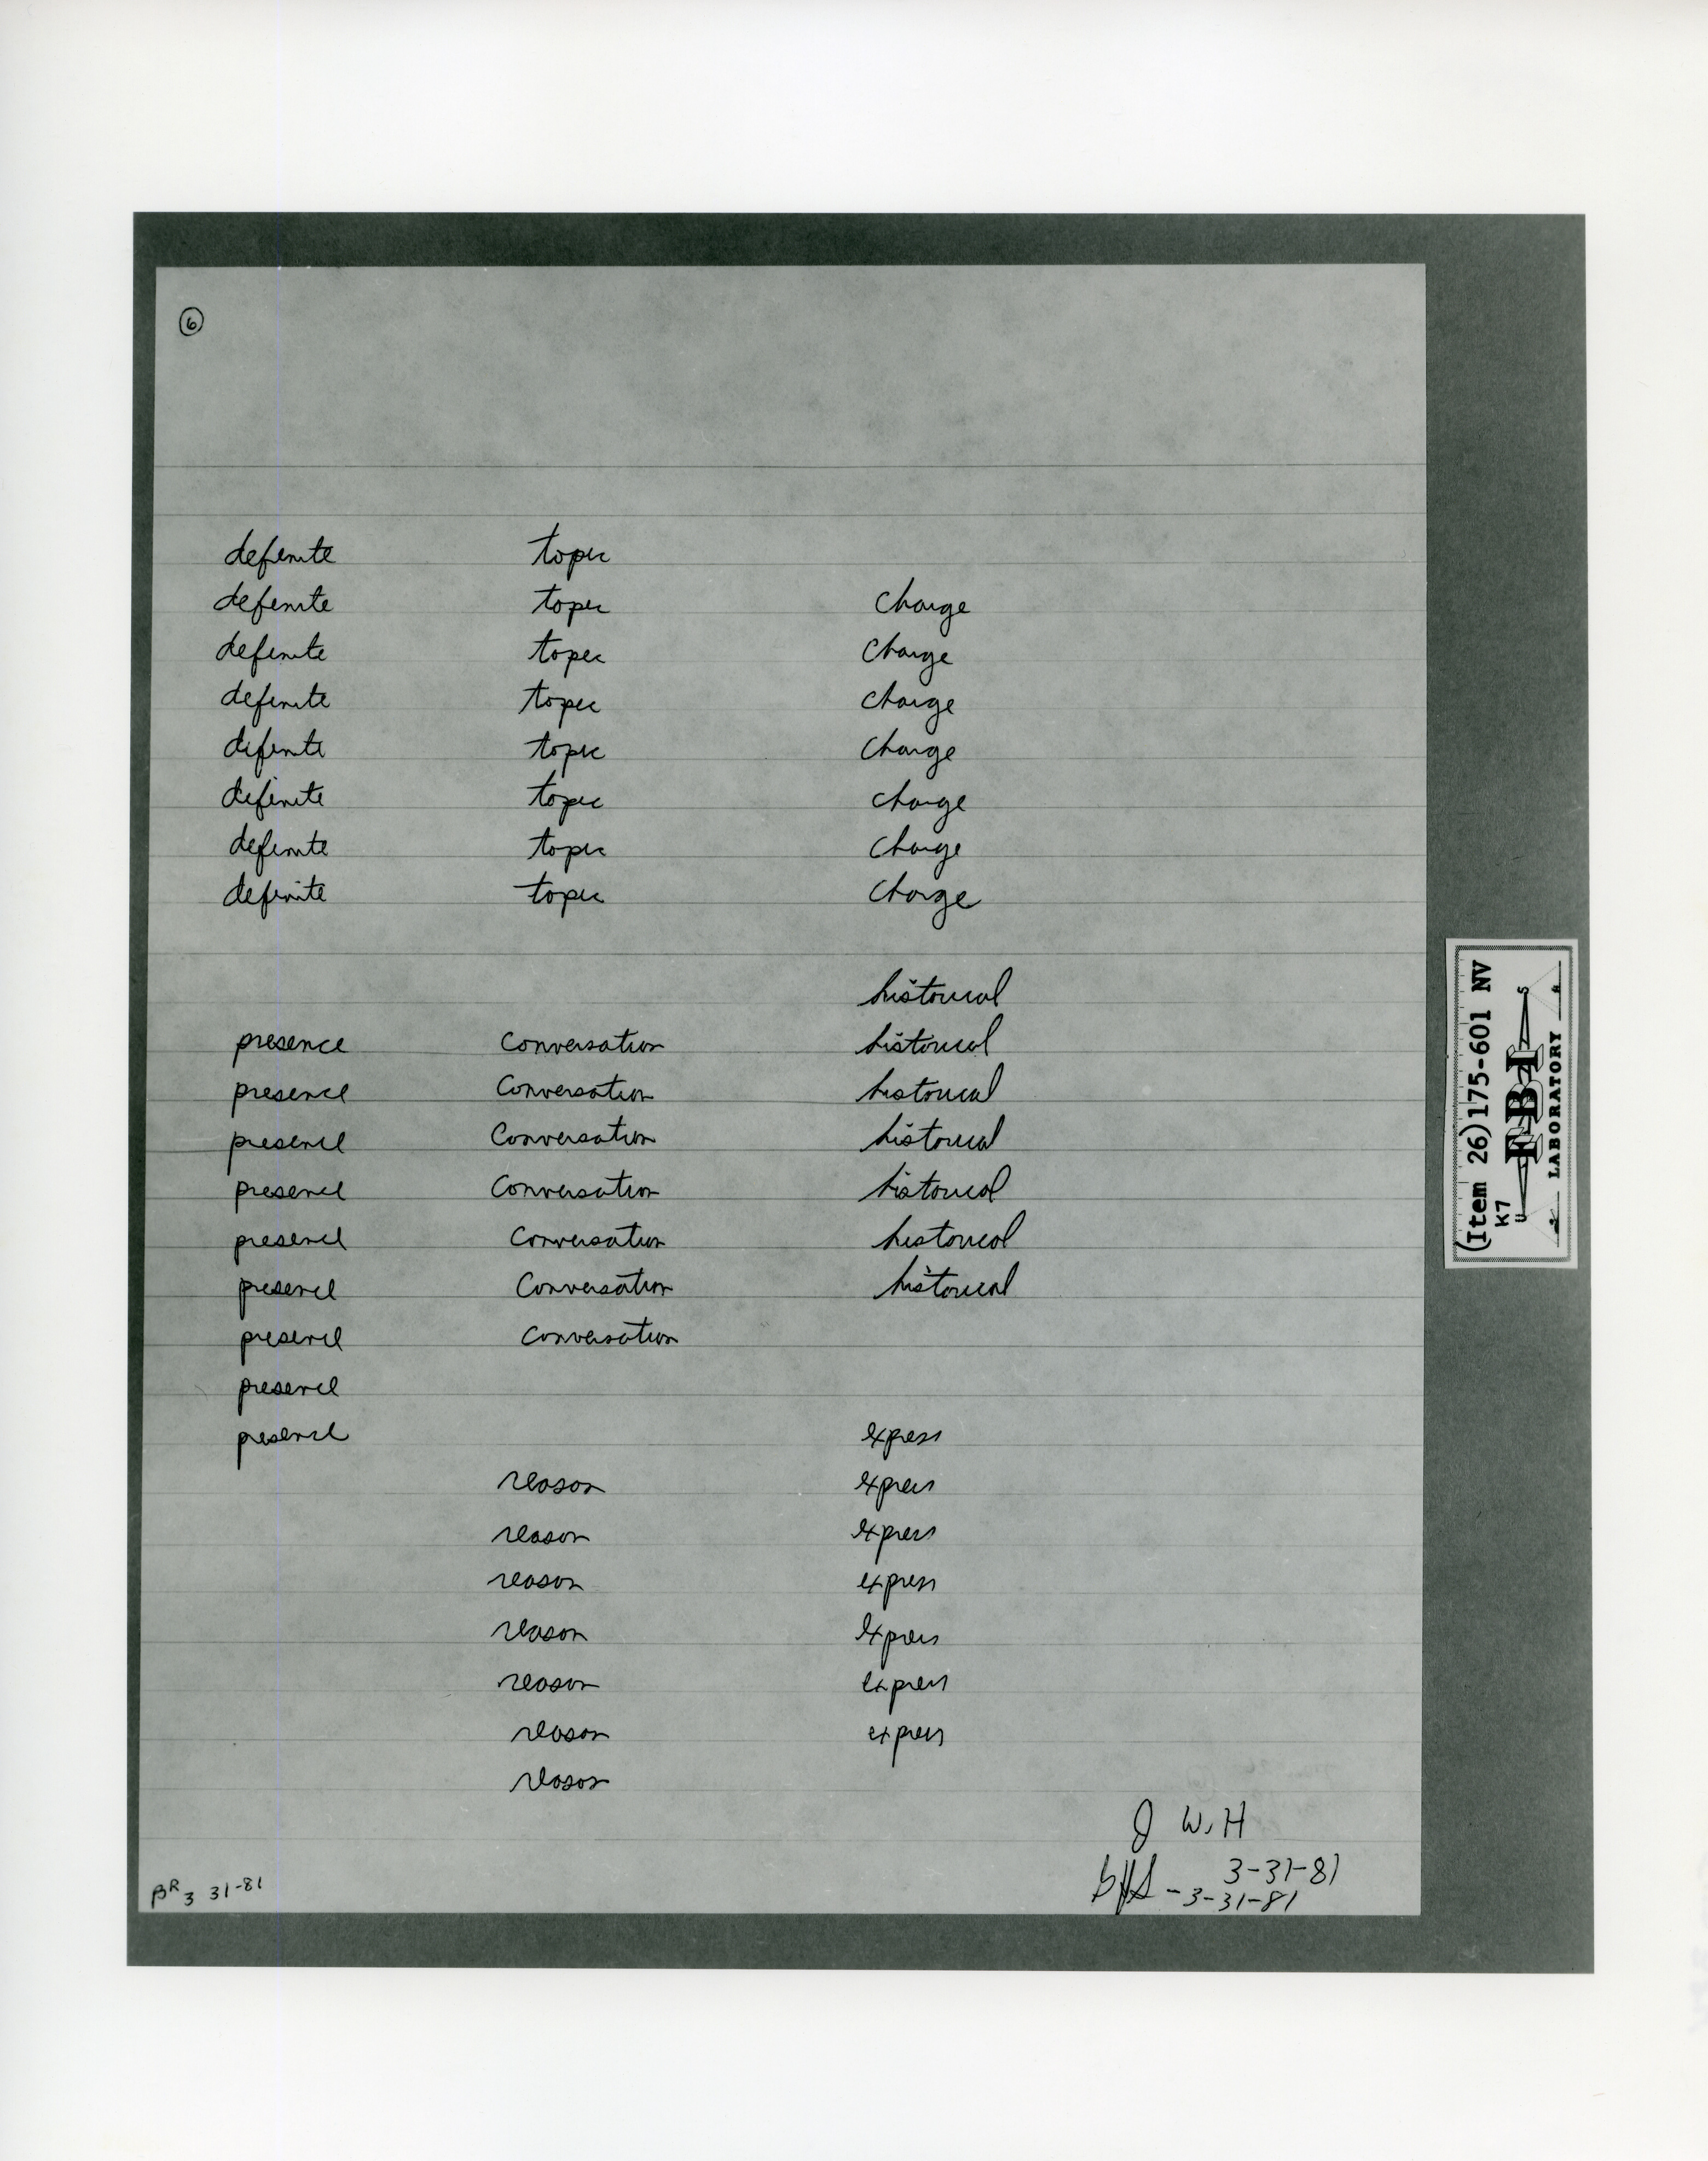 6
definite topic
definite topic charge
definite topic charge
definite topic charge
definite topic charge
definite topic charge
definite topic charge
definite topic charge
historical
presence Conversation historical
presence Conversation historical
presence Conversation historical
presence Conversation historical
presence Conversation historical
presence Conversation historical
presence Conversation
presence
presence express
reason express
reason express
reason express
reason express
reason express
reason express
reason
J W. H
3-31-81
-3-31-81
BR 3 31-81
(Item 26)175-601 NV
K7
FBI
LABORATORY